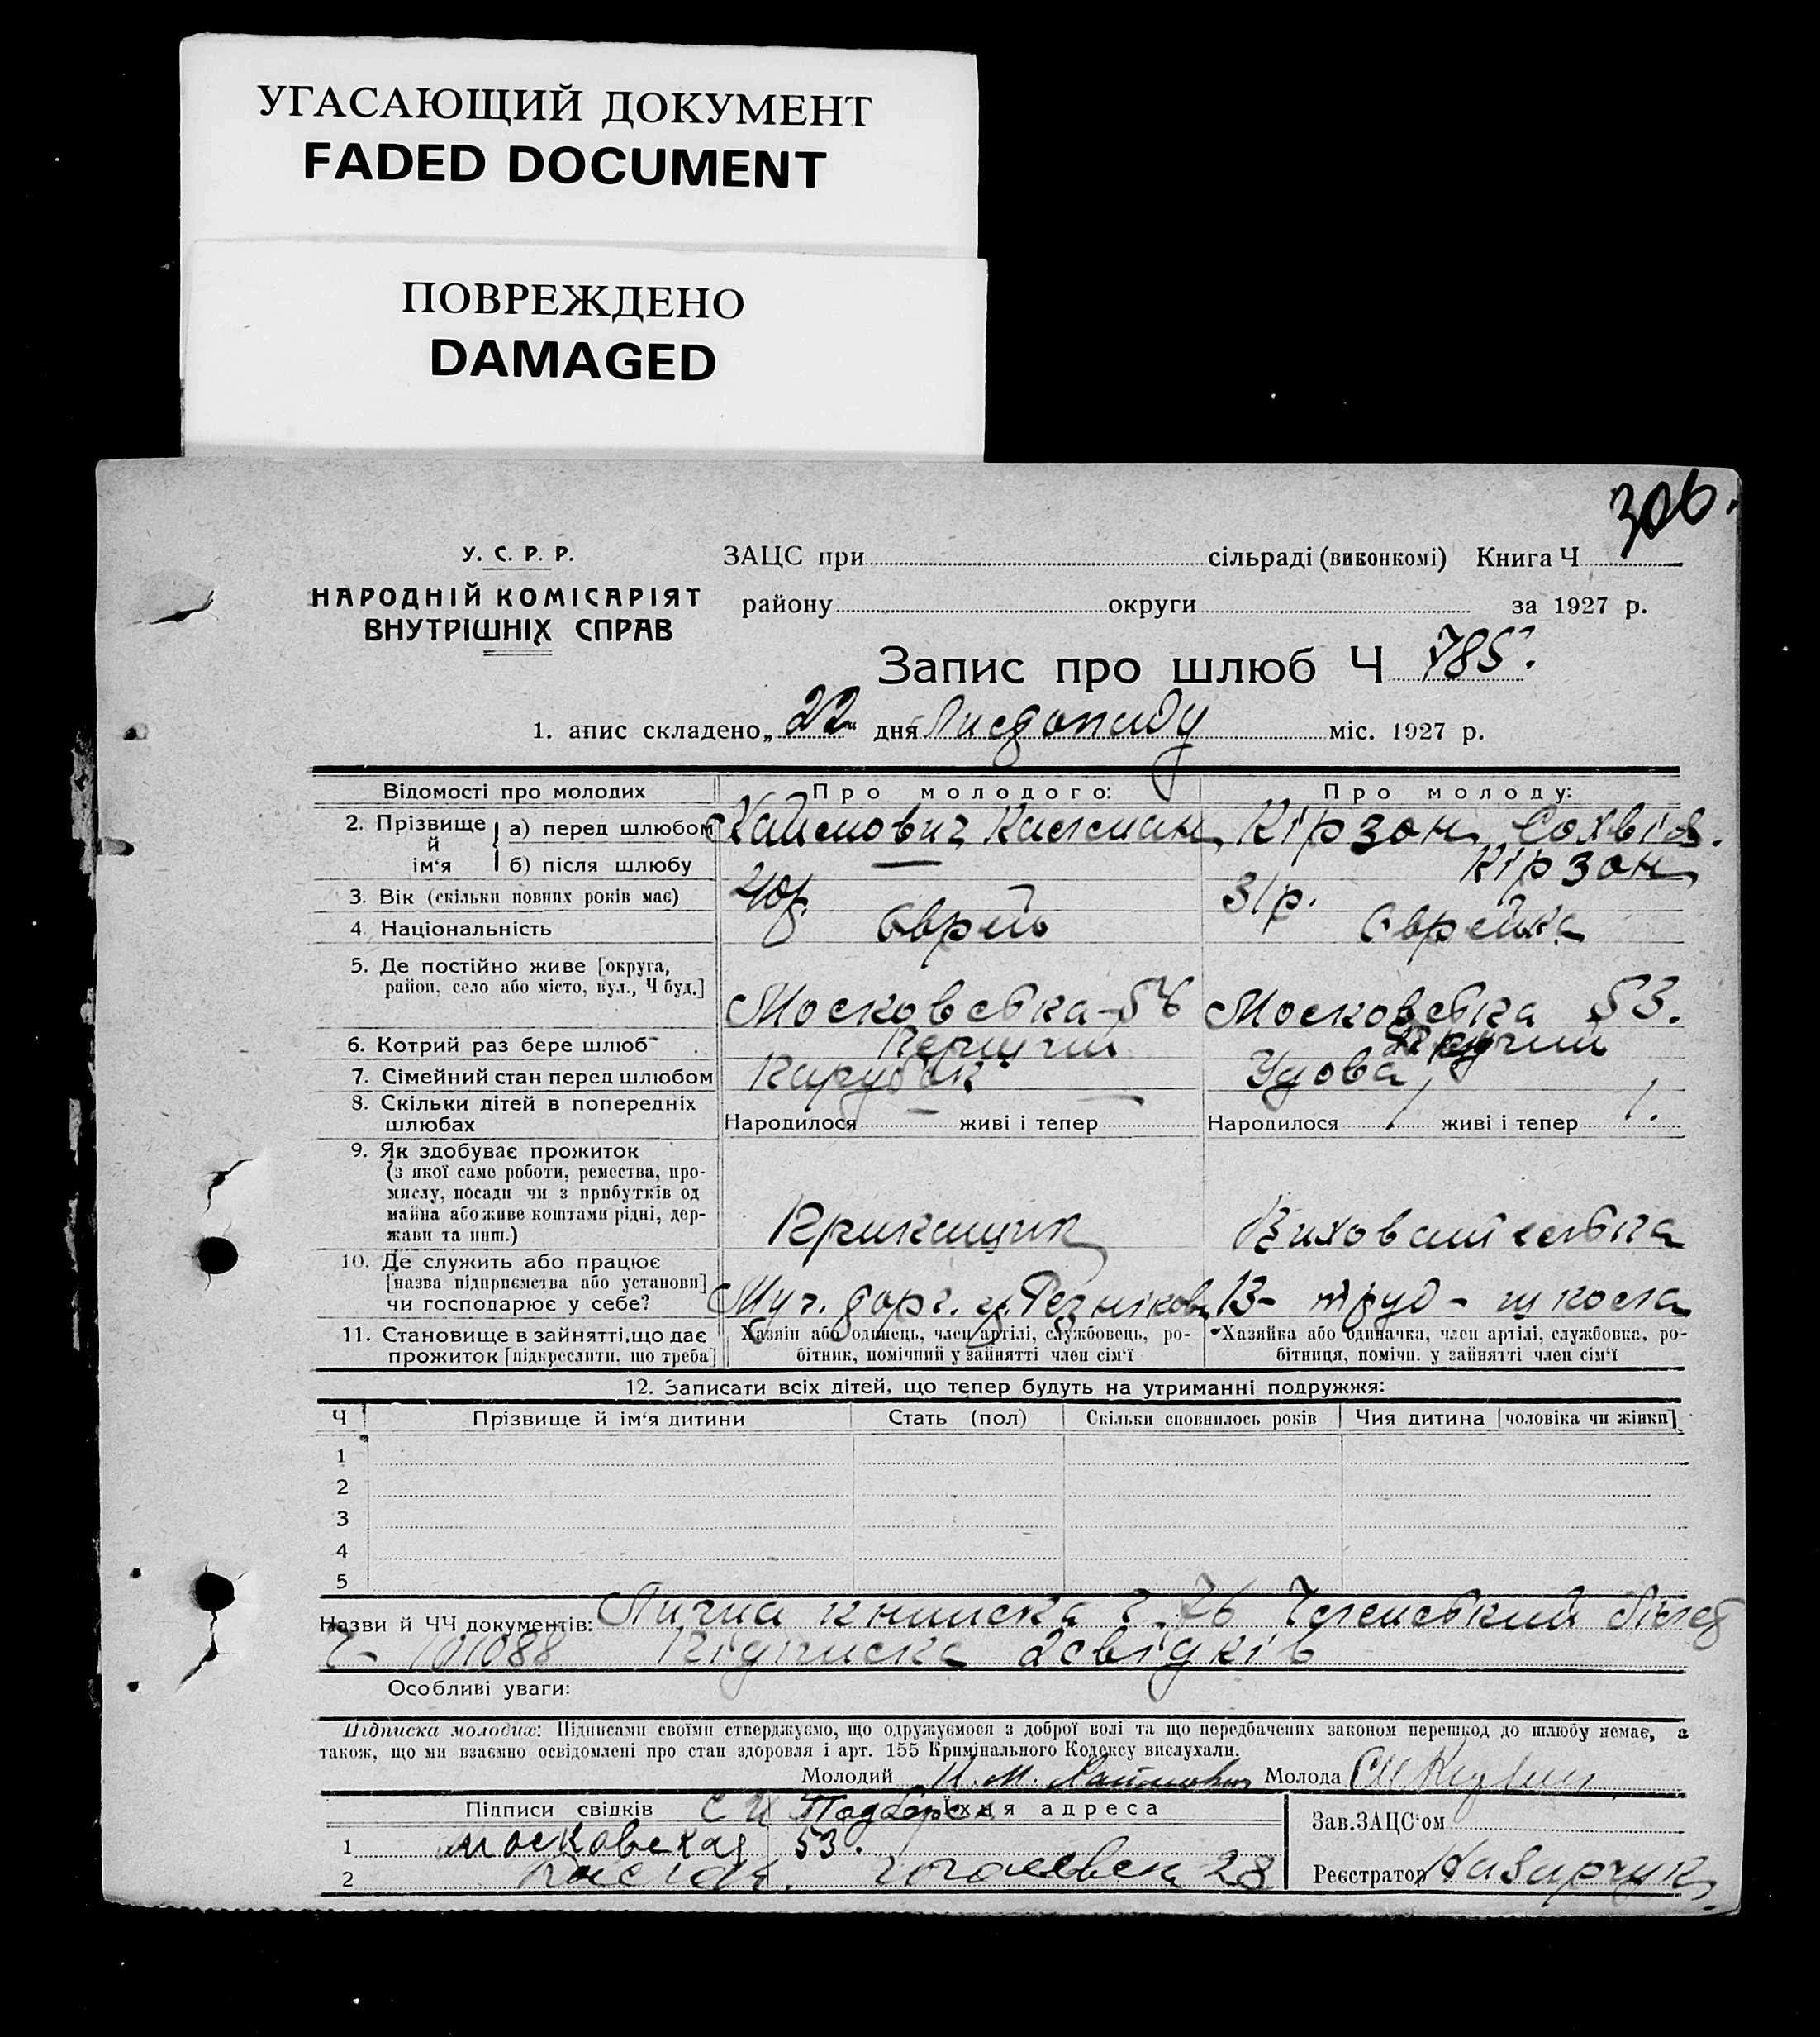 УГАСАЮЩИЙ ДОКУМЕНТ
FADED DOCUMENT
ПОВРЕЖДЕНО
DAMAGED
306.
У. С. Р. Р.
НАРОДНІЙ КОМІСАРІЯТ
ВНУТРІШНІХ СПРАВ
ЗАЦС при сільраді (виконкомі) Книга Ч
району округи за 1927 р.
Запис про шлюб Ч 785.
1. апис складено „22“ дня Листопаду міс. 1927 р.
Відомості про молодих Про молодого: Про молоду:
2. Прізвище й ім‘я а) перед шлюбом Хаймович Кірзон Сохвія.
б) після шлюбу — Кірзон
3. Вік (скільки повних років має) 40р. 31р.
4. Національність Єврей Єврейка
5. Де постійно живе [округа,
район, село або місто, вул., Ч буд.] Московська Московська 53.
6. Котрий раз бере шлюб Перший Другий
7. Сімейний стан перед шлюбом Парубок Удова
8. Скільки дітей в попередніх
шлюбах Народилося — живі і тепер — Народилося 1 живі і тепер 1.
9. Як здобуває прожиток
(з якої саме роботи, ремества, про-
мислу, посади чи з прибутків од
майна або живе коштами рідні, дер-
жави та инш.) Прикащик Вихователька
10. Де служить або працює
[назва підприємства або установи]
чи господарює у себе? торг. 13- труд - школа
11. Становище в зайнятті, що дає
прожиток [підкреслити, що треба]
Хазяїн або одинець, член артілі, службовець, ро-
бітник, помічний у зайнятті член сім‘ї
Хазяйка або одиначка, член артілі, службовка, ро-
бітниця, помічн. у зайнятті член сім‘ї
12. Записати всіх дітей, що тепер будуть на утриманні подружжя:
Ч Прізвище й ім‘я дитини Стать (пол) Скільки сповнилось років Чия дитина [чоловіка чи жінки]
1
2
3
4
5
Назви й ЧЧ документів: Лична книжка ч. 76 Членський
ч- 101088 Підписка 2 свідків
Особливі уваги:
Підписка молодих: Підписами своїми стверджуємо, що одружуємося з доброї волі та що передбачених законом перешкод до шлюбу немає, а
також, що ми взаємно освідомлені про стан здоровля і арт. 155 Кримінального Кодексу вислухали.
Молодий К. М. Хаймович Молода
Підписи свідків Їхня адреса
1 Московская 53.
2 28
Зав.ЗАЦС‘ом
Реєстратор Назарчук